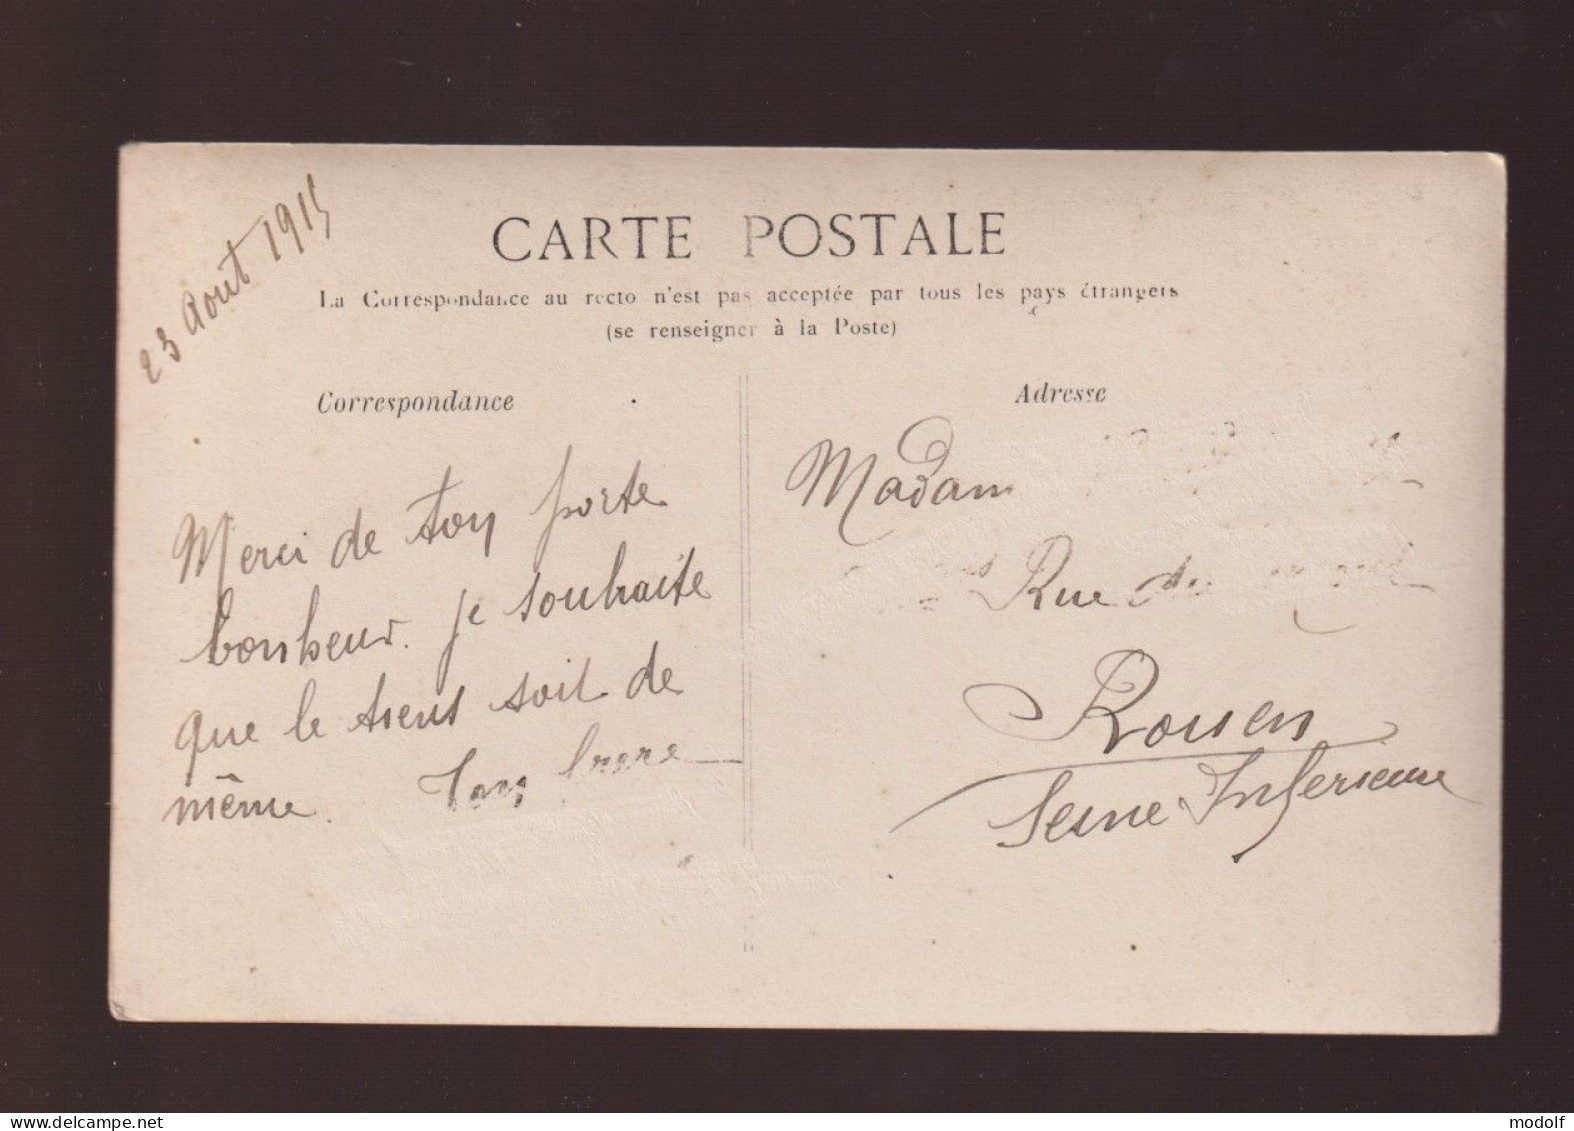 23 Aout 1915
CARTE POSTALE
La Correspondance au recto n'est pas acceptée par tous les pays étrangers
(se renseigner à la Poste)
Correspondance
Merci de ton porte
bonheur. je souhaite
que le tiens soit de
même.
Adresse
Madam
Rue du
Rouen
Seine Inferieure
www.delcampe.net
modolf